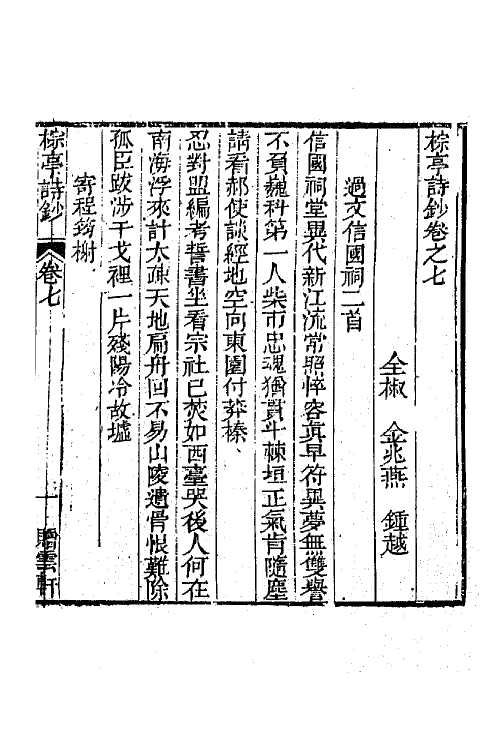 棕亭詩鈔卷之七
全椒　金兆燕　鍾越
過文信國祠二首
信國祠堂異代新江流常照悴容真早符異夢無雙譽
不負魏科第一人柴市忠魂猶貫斗棘垣正氣肯隨塵
請看郝使談經地空向東園付莽榛
忍對盟編考誓書坐看宗社已焚如西臺哭後人何在
南海浮來計太疎天地扁舟回不易山陵遺骨恨難除
孤臣跋涉干戈裡一片殘陽冷故墟
寄程筠榭
棕亭詩鈔　卷七　一　贈雲軒